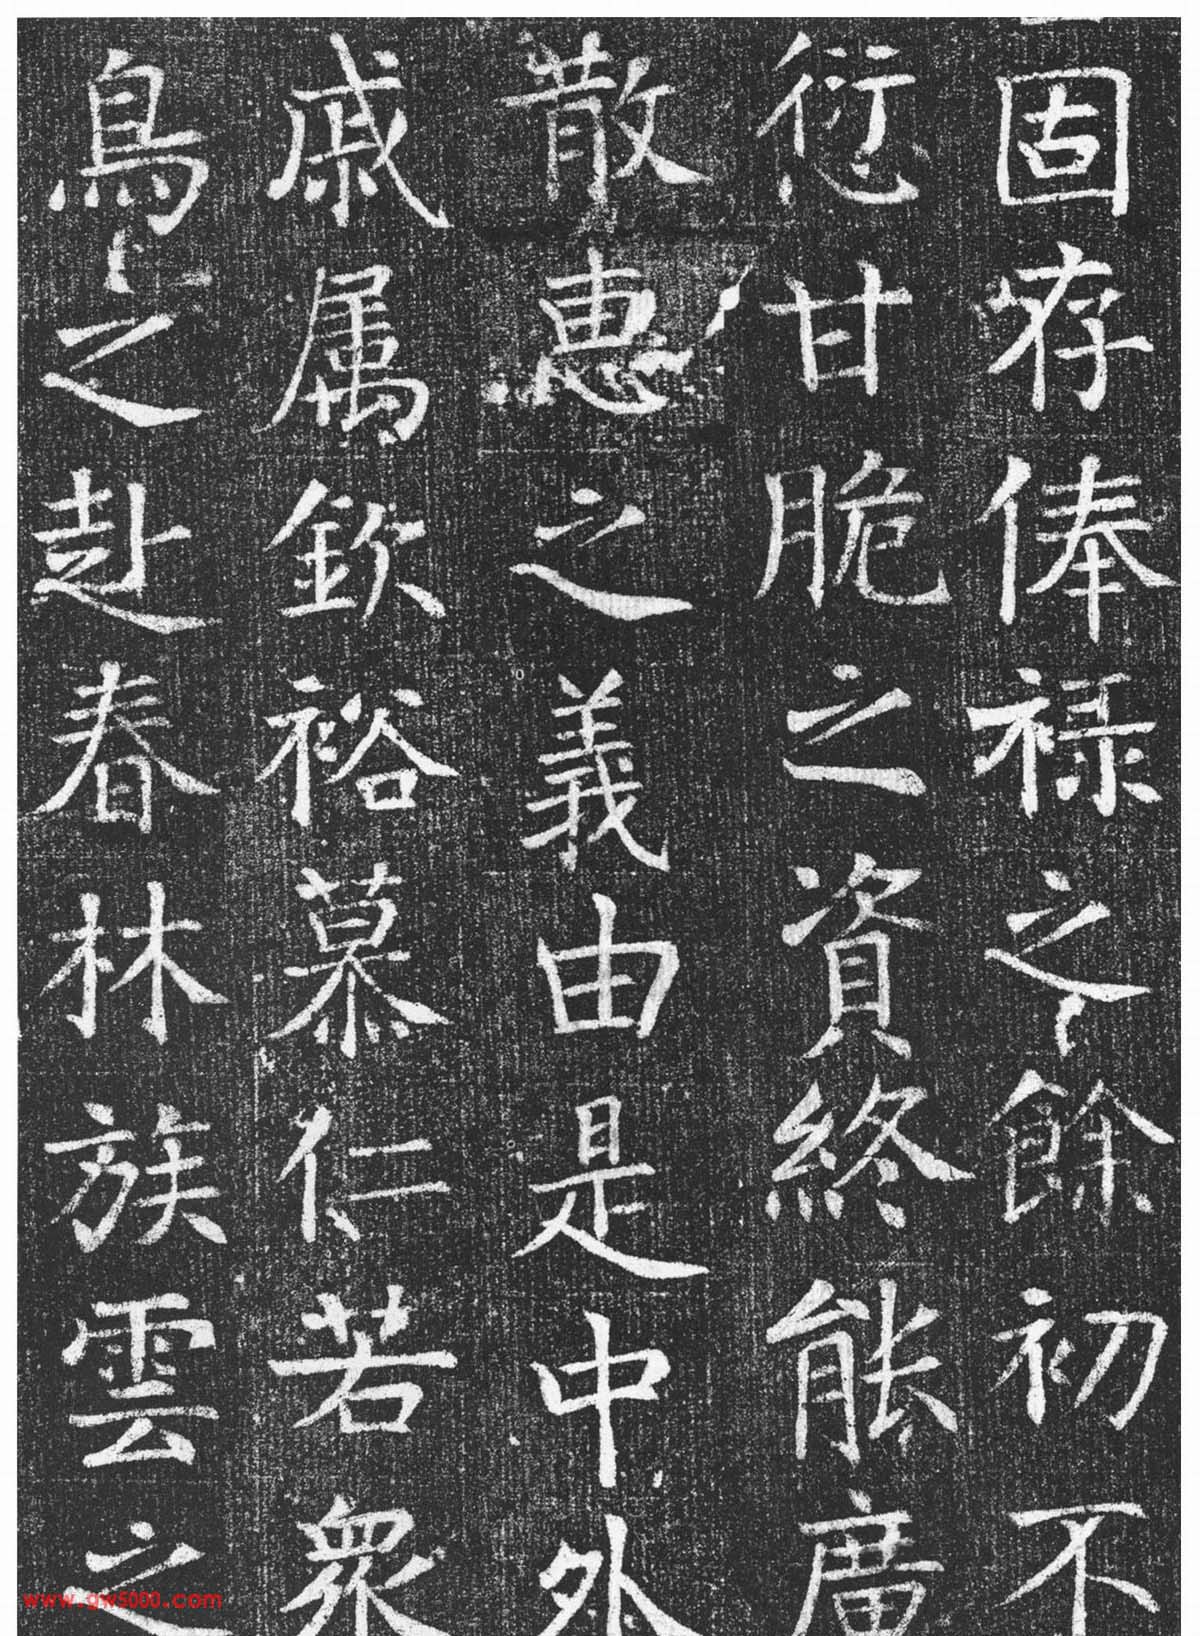 固存俸禄之餘初不
愆甘脆之資終能廣
散惠之義由是中外
戚属欽裕慕仁若衆
鳥之赴春林族雲之
www.gw5000.com